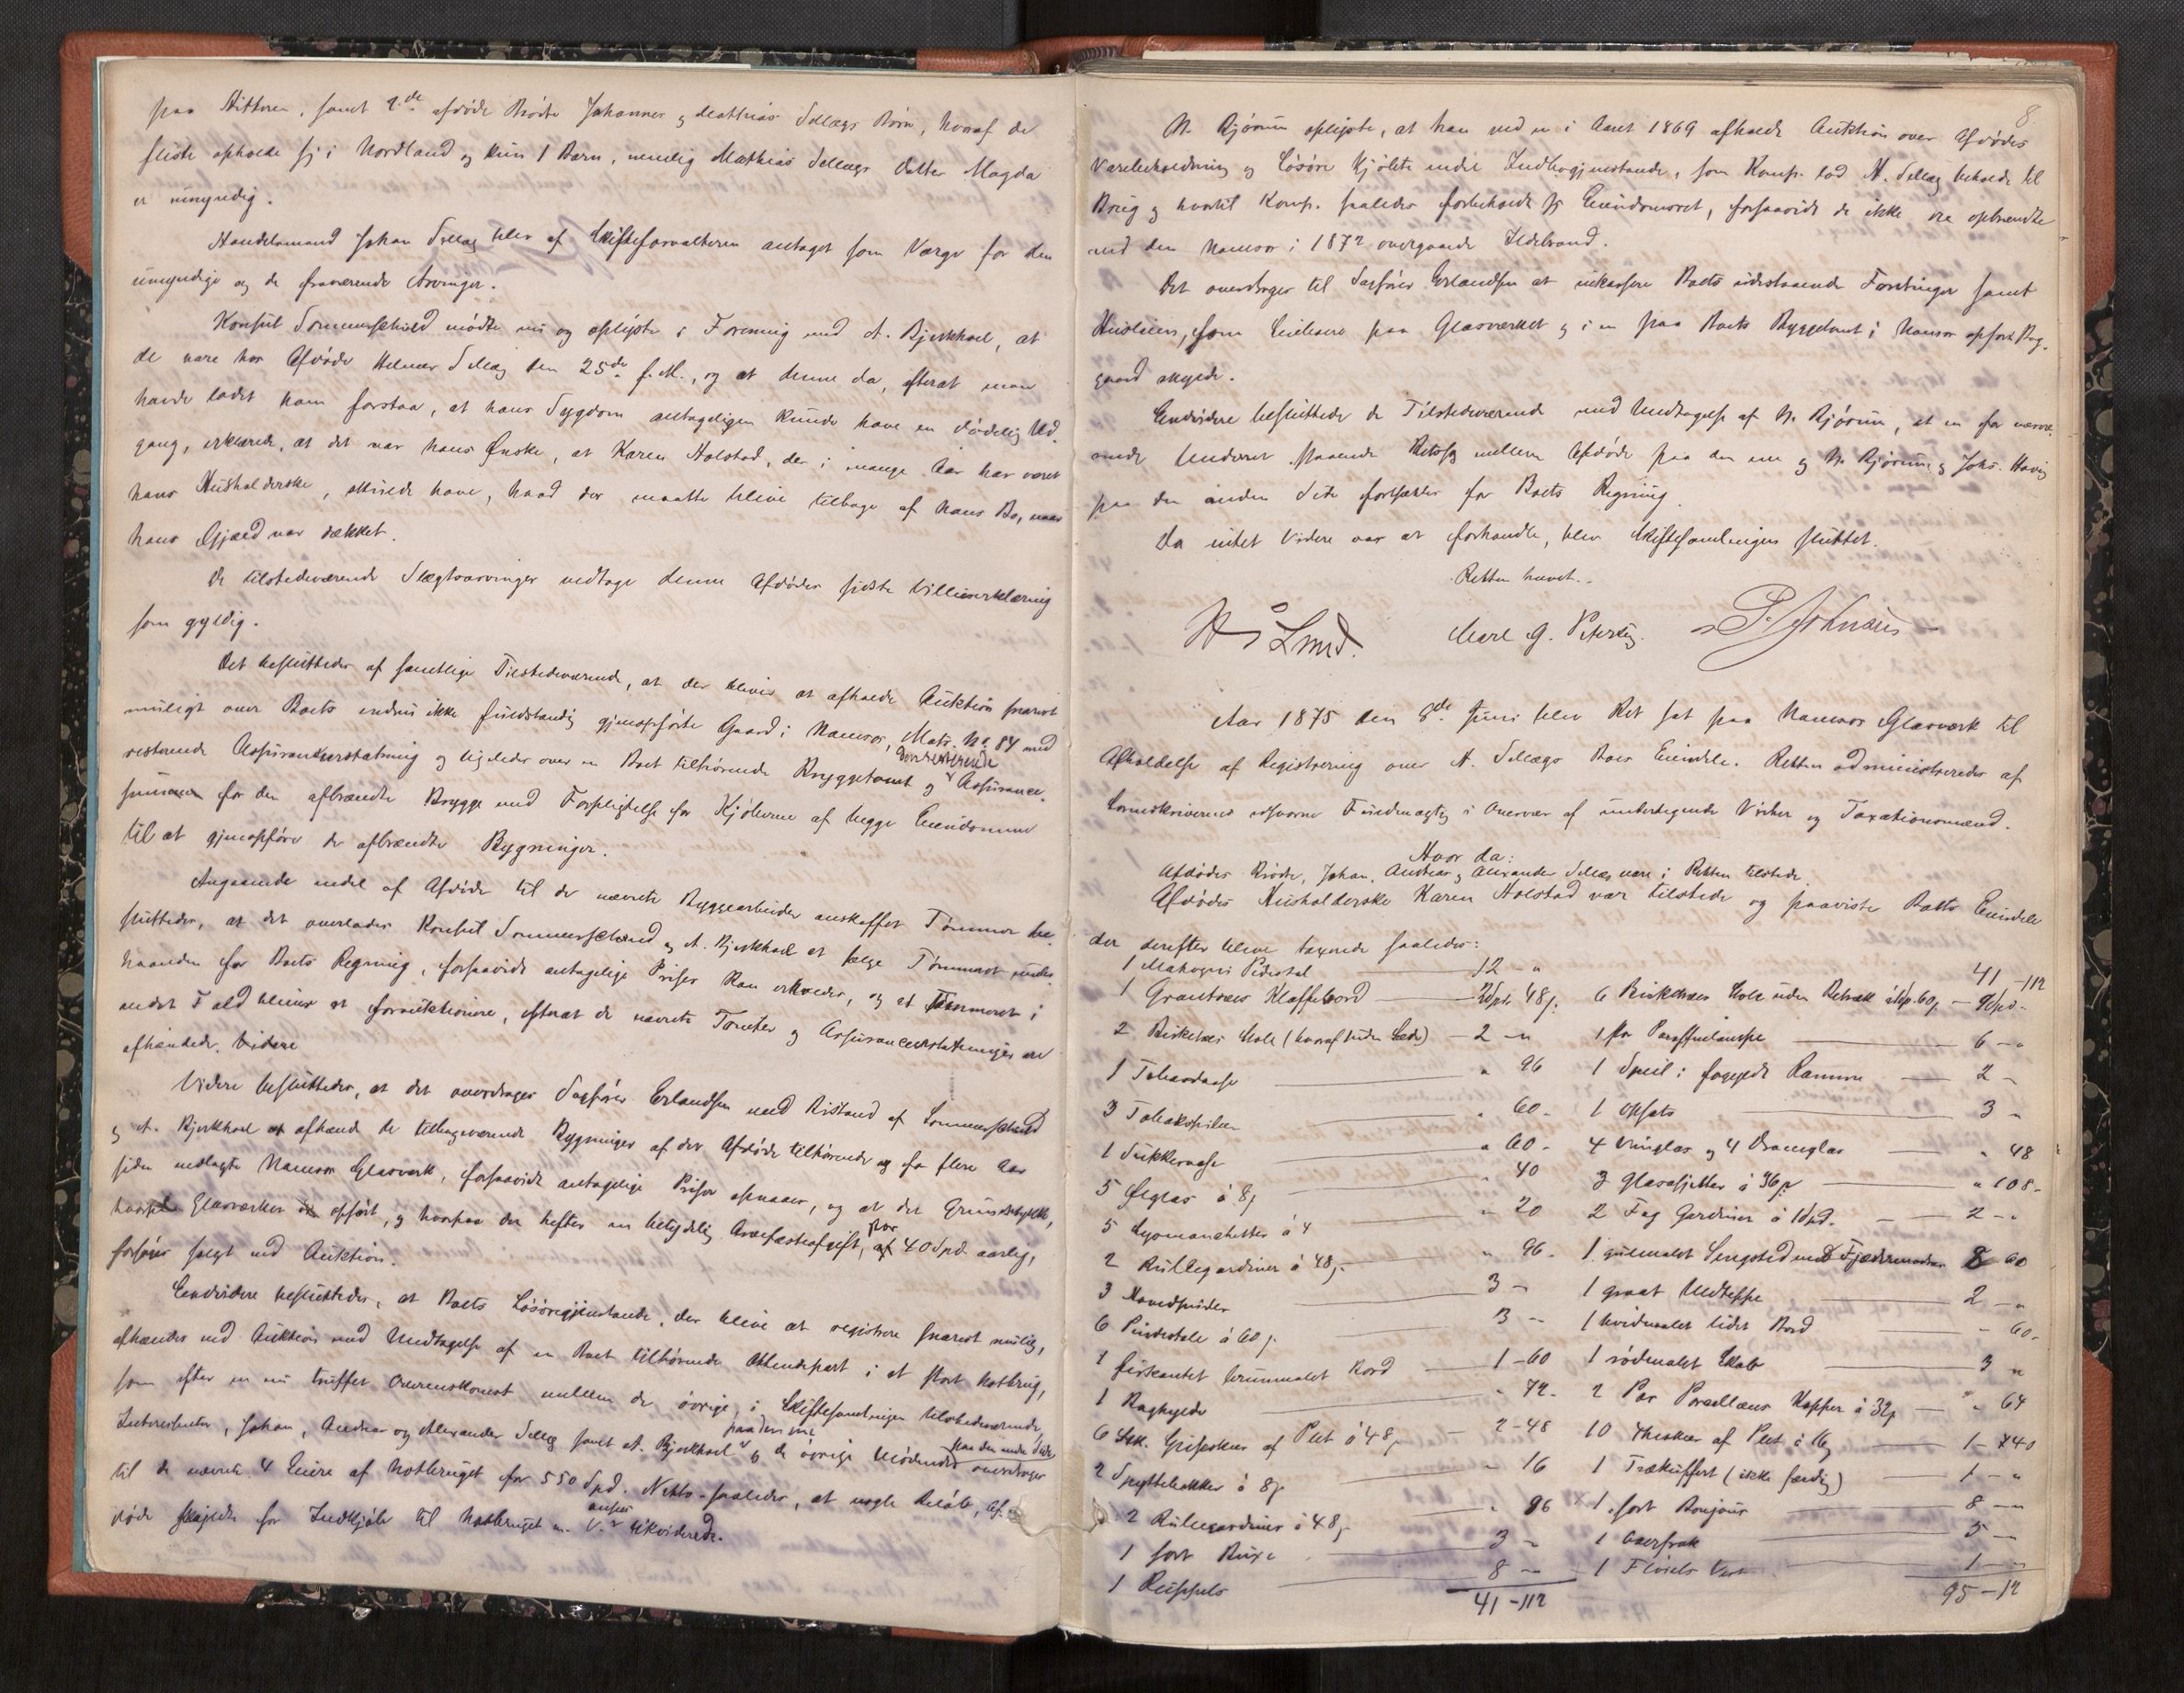 paa Hitteren, samt 2de afdöde Brödre Johannes og Mathias Sellægs Börn, hvoraf de
fleste opholde sig i Nordland og kun 1 Barn, nemlig Mathias Sellægs Datter Magda
er umyndig.
Handelsmand Johan Sellæg blev af Skifteforvalteren antaget som Værge for den
umyndige og de fraværende Arvinger.
Konsul Sommerschield mödte nu og oplyste i Forening med A. Bjerkhoel, at
de vare hos Afdöde Helmer Sellæg den 25de f.M., og at denne da, efterat man
havde ladet ham forstaa, at hans Sygdom antageligen kunde have en dödelig Ud-
gang, erklærede, at det var hans Önske, at Karen Holstad, der i mange Aar har været
hans Husholderske, skulde have, hvad der maatte blive tilbage af hans Bo, naar
hans Gjæld var dækket.
De tilstedeværende Slægtsarvinger vedtoge denne Afdödes sidste Villieserklæring
som gyldig.
Det besluttedes af samtlige Tilstedeværende, at der bliver at afholde Auktion snarest
muligt over Boets endnu ikke fuldstændig gjenopförte Gaard i Namsos, Matr. No 84 med
resterende Assuranceerstatning og ligeledes over en Boet tilhörende Bryggetomt og Assurance-
summen for den afbrændte Brygge med Forpligtelse for Kjöberne af begge Eiendomme
til at gjenopföre de afbrændte Bygninger.
Angaaende endel af Afdöde til de nævnte Byggearbeider anskaffet Tömmer be-
sluttedes, at det overlades Konsul Sommerschield og A. Bjerkhoel at sælge Tömmeret under
haanden for Boets Regning, forsaavidt antagelige Priser kan erholdes, og at Tömmeret i
andet Fald bliver at forauktionere, efterat de nævnte Tomter og Assuranceerstatninger ere
afhændede. Videre
Videre besluttedes, at det overdrages Sagförer Erlandsen med Bistand af Sommerschield
og A. Bjerkhoel at afhænde de tilbageværende Bygninger af det Afdöde tilhörende og for flere Aar
siden nedlagte Namsos Glasværk, forsaavidt antagelige Priser opnaaes, og at det Grundstykke,
hvorpaa Glasværket er opfört, og hvorpaa der hefter en betydelig Arvefæsteafgift, stor 40 Spd. aarlig,
forsöges solgt ved Auktion.
Endvidere besluttedes, at Boets Lösöregjenstande, der blive at registrere snarest mulig,
afhændes ved Auktion med Undtagelse af en Boet tilhörende Ottendepart i et stort Notbrug,
som efter en nu truffet Overenskomst mellem de övrige, i Skiftesamlingen tilstedeværende
Interessenter, Johan, Andreas og Alexander Sellæg samt A. Bjerkhoel paa den ene og de övrige Mödende paa den anden Side overdrages
til de nævnte 4 Eiere af Notbruget for 550 Spd. Netto saaledes, at nogle Belöb, Af-
döde skyldte for Indkjöb til Notbruget m. V. ansees likviderede.
8
N. Björum oplyste, at han ved en i Aaret 1869 afholdt Auktion over Afdödes
Varebeholdning og Lösöre kjöbte endel Indbogjenstande, som Komp. lod H. Sellæg beholde til
Brug og hvortil Komp. saaledes forbeholdt sig Eiendomsret, forsaavidt de ikke ere opbrændte
ved den Namsos i 1872 overgaaede Ildebrand.
Det overdrages til Sagförer Erlandsen at inkassere Boets udestaaende Fordringer samt
Huusleien, som Leieboere paa Glasværket og i en paa Boets Byggetomt i Namsos opfört Bag-
gaard skylde.
Endvidere besluttede de Tilstedeværende med Undtagelse af N. Björum, at en for nærvæ-
rende Underret staaende Retssag mellem Afdöde paa den ene og N. Björum og Johs. Havig
paa den anden Side fortsættes for Boets Regning.
Da intet Videre var at forhandle, blev Skiftesamlingen sluttet.
Retten hævet.
H Lund. Carl G. Petersen. P. Johnsen
Aar 1875 den 8de Juni blev Ret sat paa Namsos Glasværk til
Afholdelse af Registrering over H. Sellægs Boes Eiendele. Retten administreredes af
Sorenskriverens edsvorne Fuldmægtig i Overvær af undertegnede Vidner og Taxationsmænd.
Hvor da:
Afdödes Brödre, Johan, Andreas og Alexander Sellæg vare i Retten tilstede
Afdödes Husholderske Karen Holstad var tilstede og paaviste Boets Eiendele
der derefter bleve taxerede saaledes:
1 Mahogni Pidestal 12 - "
1 Grantræes Klaffebord 2 Spd. 48 s.
2 Birketræes Stole (hvoraf 1 uden Sæde) 2 - "
1 Tobaksdaase " 96
3 Tobakspiber " 60 -
1 Sukkerdaase " 60 -
5 Ölglas à 8 s " 40
5 Lysmanchetter à 4 " 20
2 Rullegardiner à 48 s. " 96 -
3 Hovedpuder 3 -
6 Pindestole à 60 s. 3 -
1 firkantet brunmalet Bord 1 - 60
1 Boghylde " 72 -
6 Stk. Spiseskeer af Plet à 48 s 2 - 48
2 Spyttebakker à 8 s. " 16
2 Rullegardiner à 48 s. " 96
1 sort Buxe 3 -
1 8 -
41 - 112
41 - 112
6 Birketræes Stole uden Betræk à 1 Sp. 60 s. - 9 Spd -
1 stor Paraffinlampe 6 - "
1 Speil i forgyldt Ramme 2 -
1 Opsats 3 "
4 Vinglas og 4 Dramglas " 48
3 Glasasjetter à 36 s " 108 -
2 Fag Gardiner à 1 Spd. 2 - "
1 gulmalet Sengsted med Fjædermadras 8 60
1 graat Uldteppe 2 - "
1 hvidmalet lidet Bord - 60 -
1 rödmalet Skab 3 "
2 Par Porcellæns Kopper à 32 s " 64
10 Theskeer af Plet à 16 s 1 - 40
1 Trækuffert (ikke færdig) 1 - "
1 sort Bonjour 8 - "
1 Overfrak 5 -
1 Flöiels Vest 1 -
95 - 12